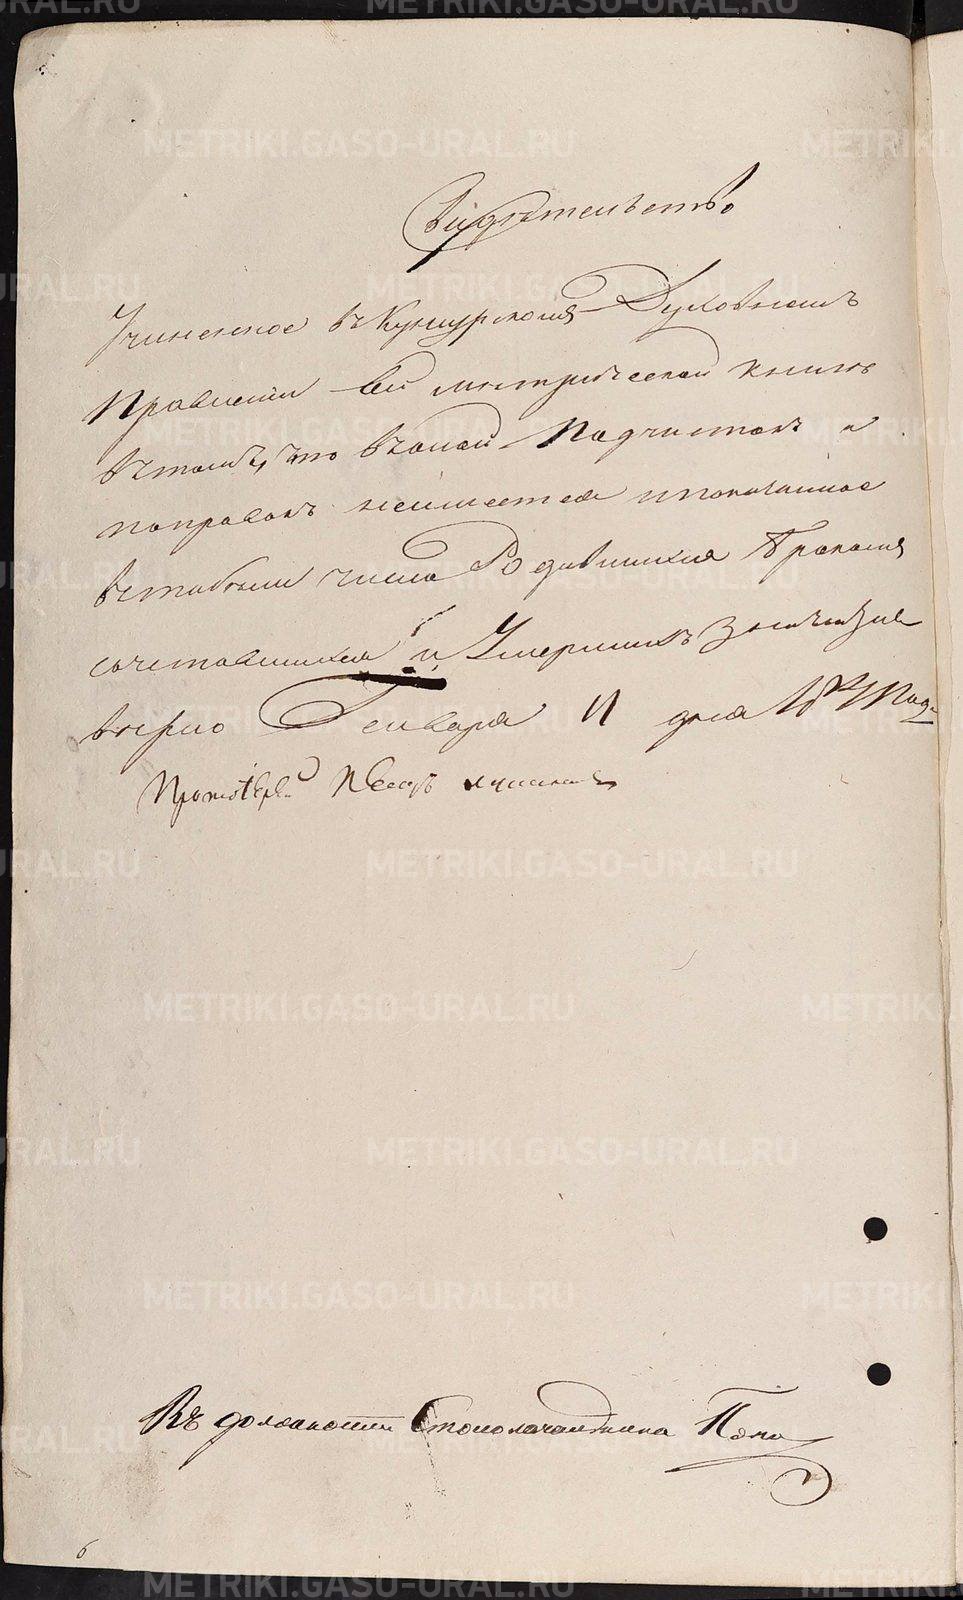 Свидѣтельство
Учиненное въ Кунгурскомъ Духовномъ
Правленіи въ сей метрической книгѣ
въ томъ, что въ оной подчистокъ и
поправокъ неимеется и показанное
въ табели число Родившихся Бракомъ
сочетавшихся и Умершихъ значится
верно Генваря 11 дня
Протоіерей
Въ должности Столоначальника Попо
6